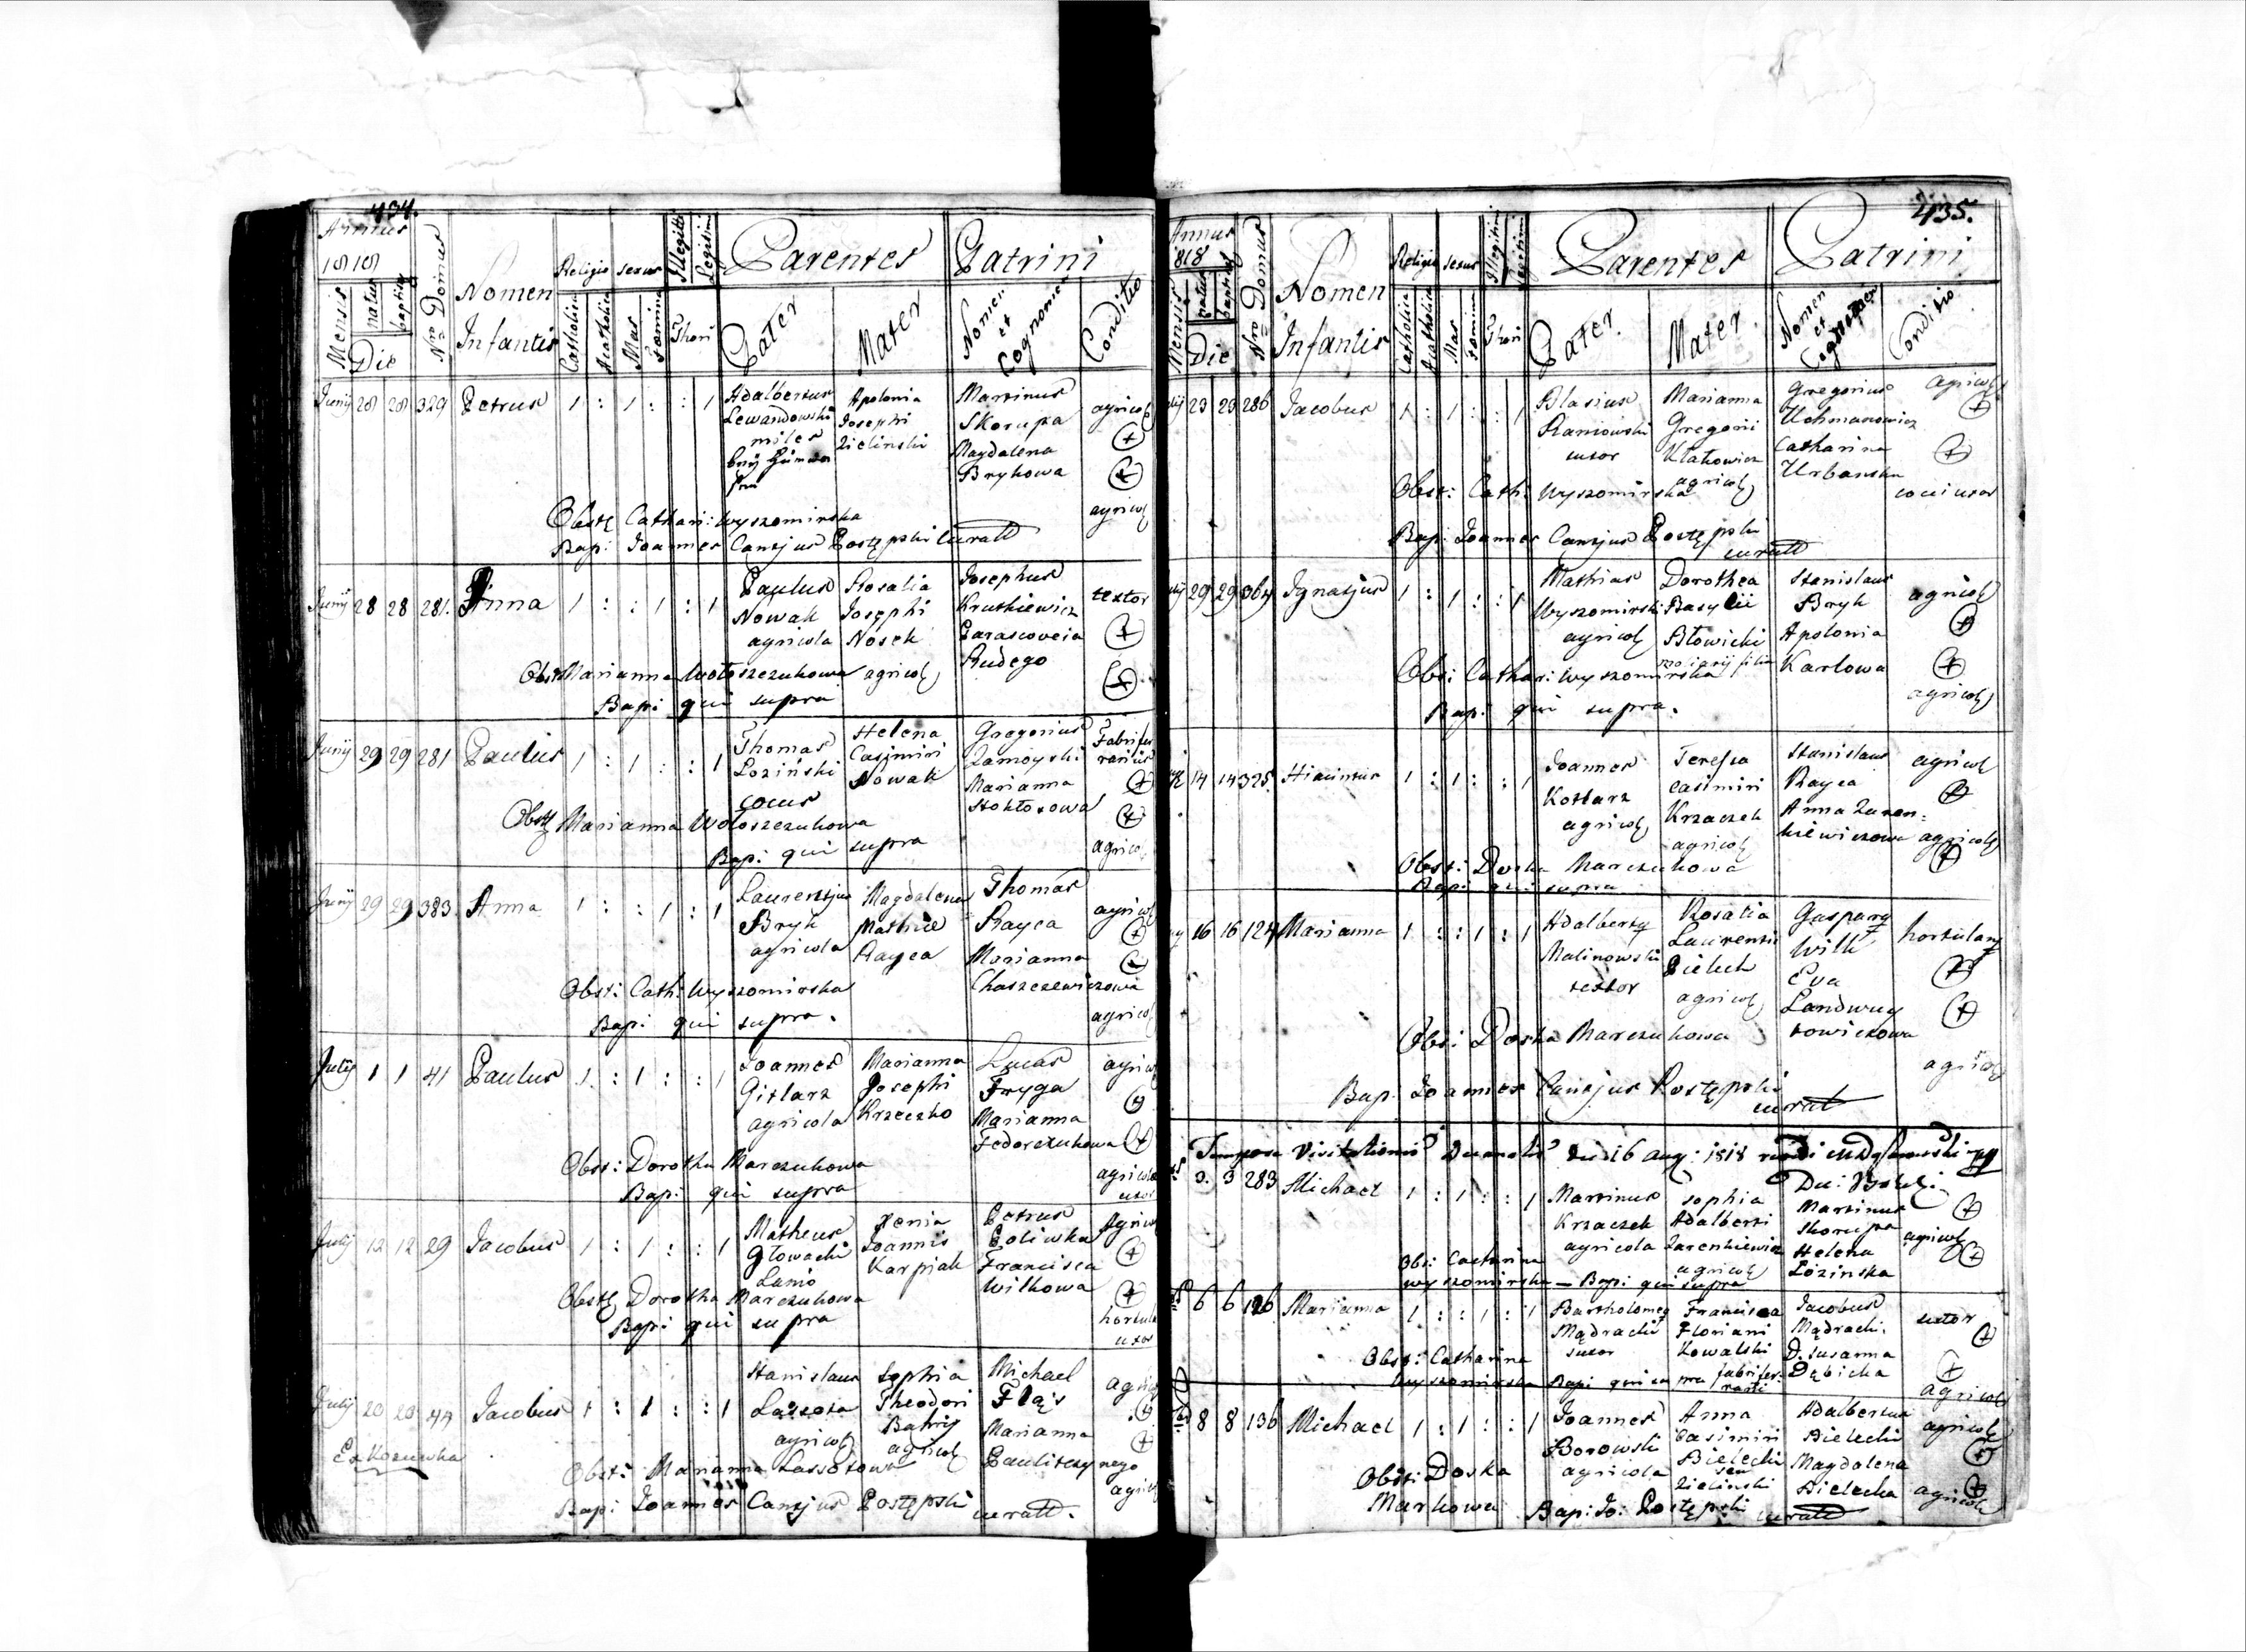 434.
Annus
1818
Mensis
natus
baptisat
Die
Nro Domus
Nomen
Infantis
Religio
Catholica
Acatholica
sexus
Mas
Foemina
Illegitti
Legitimi
Thori
Parentes
Pater
Mater
Patrini
Nomen
et
Cognomen
Conditio
Junij 28 28 329 Petrus 1 : 1 : : 1
Adalbertus
Lewandowski
miles
Apolonia
Josephi
Zielinski
Martinus
Skorupa
Magdalena
Brykowa
agricol
agricol
Obste Cathari: Wyszomirska
Bap: Joannes Canzjus Postępski curatt
Junij 28 28 281. Anna 1 : : 1 : 1
Paulus
Nowak
agricola
Rosalia
Josephi
Nosek
agricol
Josephus
Krutkiewicz
Parascoveia
Rudego
textor
Obst Marianna Wołoszczukowa
Bapi qui supra
Junij 29 29 281 Paulus 1 : 1 : : 1
Thomas
Łoziński
cocus
Helena
Casimiri
Nowak
Gregorius
Zamoyski
Marianna
Stokłosowa
Fabrifer
rarius
agrico
Obste Marianna Wołoszczukowa
Bapi qui supra
Junij 29 29 383 Anna 1 : : 1 : 1
Laurentjus
Bryk
agricola
Magdalena
Mathiæ
Rayca
Thomas
Rayca
Marianna
Chaszczewiczowa
agricol
agricol
Obst: Cath: Wyszomirska
Bapi qui supra.
Julij 1 1 41 Paulus 1 : 1 : : 1
Joannes
Gitlarz
agricola
Marianna
Josephi
Krzeczko
Lucas
Fryga
Marianna
Fedorczukowa
agricol
agricola
uxor
Obst: Dorotha Marczukowa
Bapi qui supra
Julij 12 12 29 Jacobus 1 : 1 : : 1
Matheus
Głowacki
Lanio
Xenia
Joannis
Karpiak
Petrus
Poliwka
Francisca
Wilkowa
Agricol
hortula
uxor
Obste Dorotha Marczukowa
Bapi qui supra
Julij 20 20 44 Jacobus 1 : 1 : : 1
Stanislaus
Lassota
agricol
Sophia
Theodori
Batrij
agricol
Michael
Fląis
Marianna
Paulitaynego
agricol
agricol
Obst: Marianna Lassotowa
Bapi Joannes Canzjus Postępski curatt.
435.
Annus
1818
Mensis
natus
baptisat
Die
Nro Domus
Nomen
Infantis
Religio
Catholica
Acatholica
sexus
Mas
Foemina
Thori
Parentes
Pater.
Mater.
Patrini
Nomen
et
Cognomen
Conditio.
23 23 286 Jacobus 1 : 1 : : 1
Blasius
Raniowski
sutor
Marianna
Gregorii
Kłakowicz
agricol
Gregorius
Uchmanowicz
Catharina
Urbanska
agricol
Obst: Cath: Wyszomirska
Bap: Joannes Canzjus Postępski
curatt
29 29 364 Ignatjus 1 : 1 : : 1
Mathias
Wyszomirski
agricol
Dorothea
Basylii
Błowicki
Stanislaus
Bryk
Apolonia
Karlowa
agricol
agricol
Obs: Cathar: Wyszomirska
Bap: qui supra.
14 14 325. Hiacintus 1 : 1 : : 1
Joannes
Kotlarz
agricol
Teresia
Casimiri
Krzaczek
agricol
Stanislaus
Rayca
Anna Zaren:
kiewiczowa
agricol
agricol
Obst: Doska Marczukowa
Bapi qui supra
16 16 124 Marianna 1 : : 1 : 1
Adalbertg
Malinowski
textor
Rosalia
Laurentii
Pielech
agricol
Gasparg
Wilk
Eva
Landwuy
towiczowa
hortulang
agricol
Obs: Doska Marczukowa
Bap. Joannes Canzjus Postępski
curat
Tempore Visitationis Decanalis die 16 aug: 1818
3. 3 283 Michael 1 : 1 : : 1
Martinus
Krzaczek
agricola
Sophia
Adalberti
Zarenkiewicz
agricol
Martinus
Skorupa
Helena
Łozinska
agricol
Obs: Catharina
Wyszomirska — Bapi qui supra
6 6 126 Marianna 1 : : 1 : 1
Bartholomeg
Mądracki
sutor
Francisca
Floriani
Kowalski
fabrifer:
rarii
Jacobus
Mądracki.
D. Susanna
Dębicka
sutor
agricol
Obst: Catharina
Wyszomirska Bapi qui supra
8 8 136 Michael 1 : 1 : : 1
Joannes
Borowski
agricola
Anna
Casimiri
Bielecki
seu
Zielinski
Adalbertus
Bielecki
Magdalena
Bielecka
agricol
agricol
Obst: Doska
Markowa
Bap: Jo: Postępski curatt